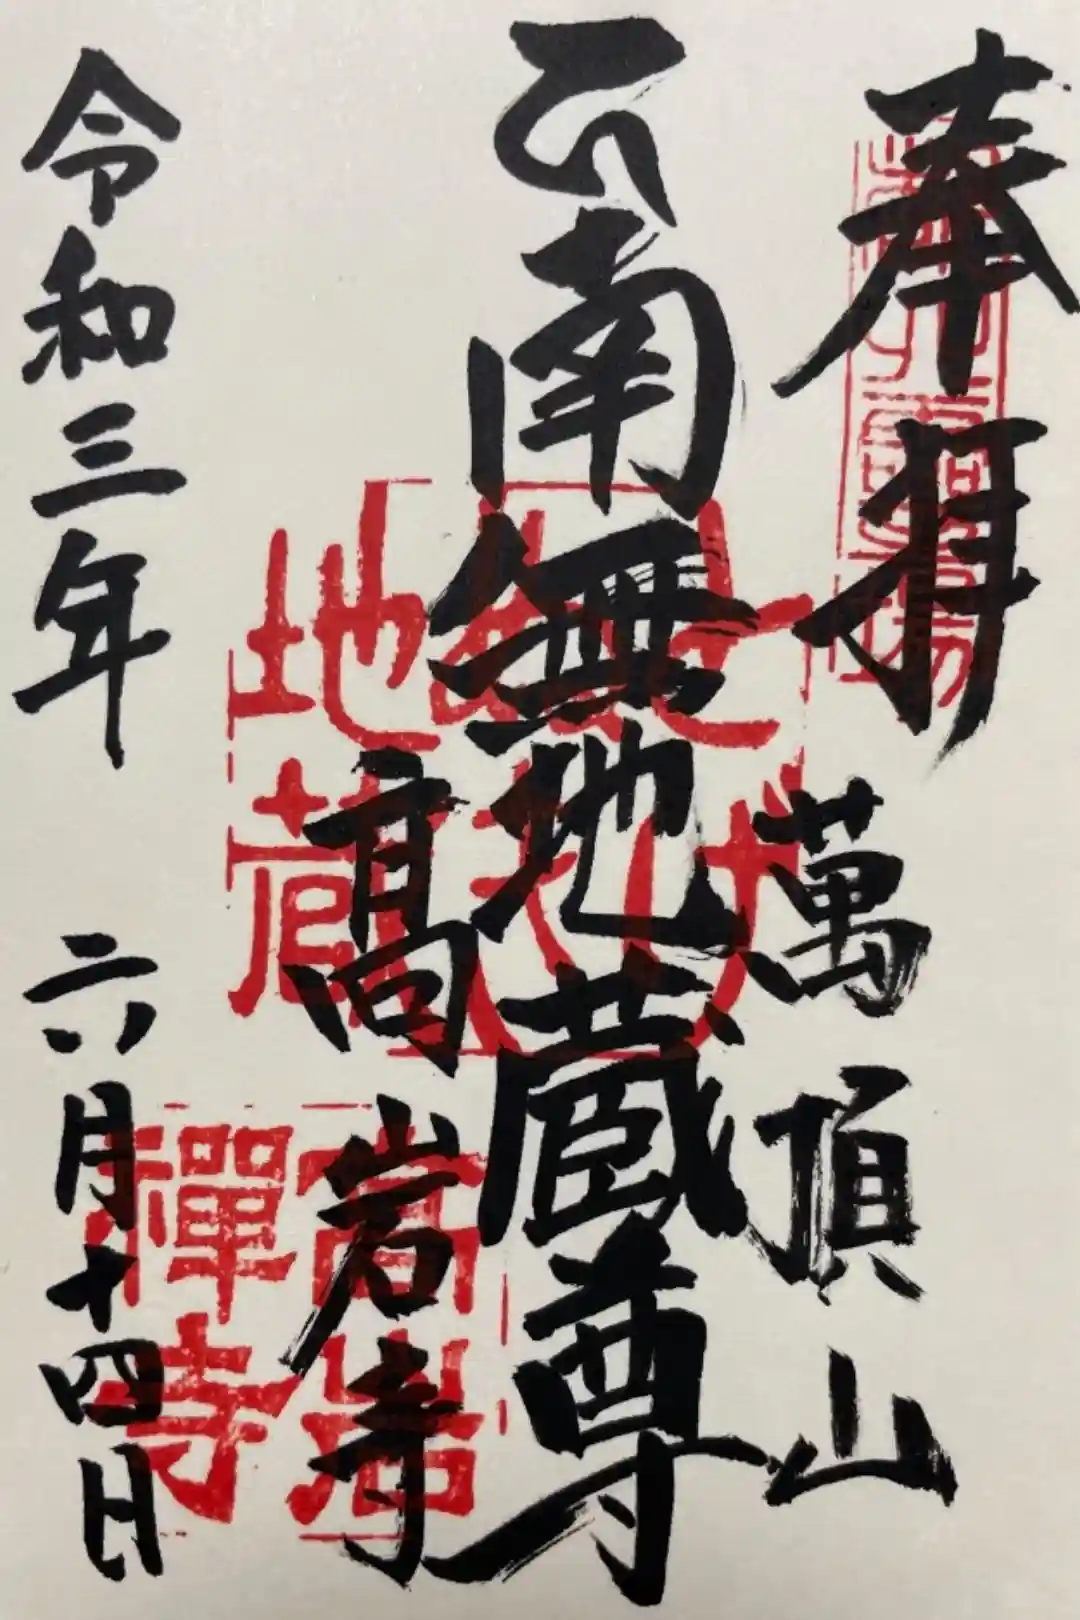 奉拝
萬頂山
南無地蔵尊
高岩寺
令和三年 六月十四日
とげぬき
地蔵
高岩
禅寺